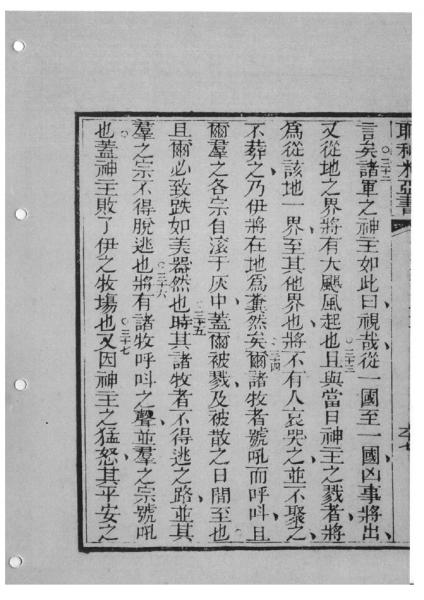 耶利米亞書
言矣○三十二諸軍之神主如此曰視哉從一國至一國凶事將出、
又從地之界將有大颶風起也○三十三且與當日神主之戮者將
為從該地一界至其他界也將不有人哀哭之、並不聚之、
不葬之、乃伊將在地為糞然矣○三十四爾諸牧者號吼而呼呌、且
爾羣之各宗自滾于灰中、蓋爾被戮、及被散之日間至也○
且爾必致跌如美器然也○三十五時其諸牧者不得逃之路、並其
羣之宗不得脫逃也○三十六將有諸牧呼呌之聲、並羣之宗號吼
也○蓋神主敗了伊之牧塲也○三十七又因神主之猛怒、其平安之